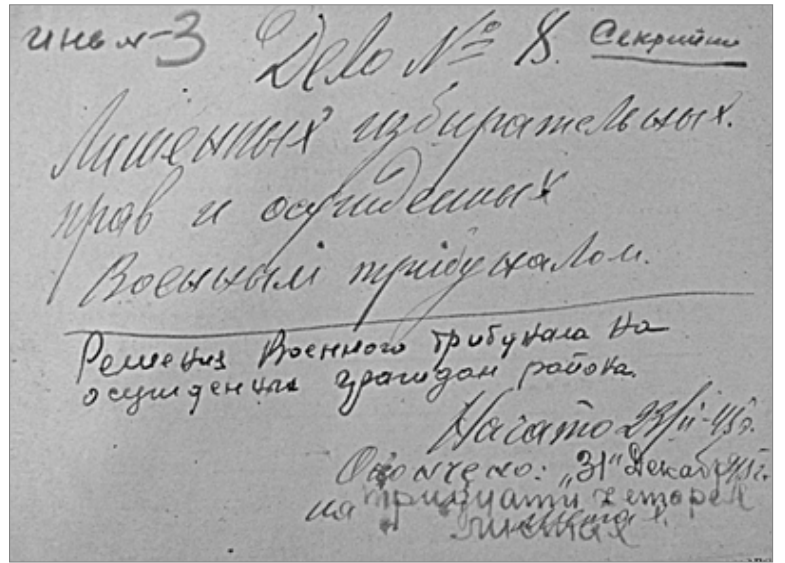 инв №-3 Дело № 8. Секрейно
Лишённых избирательных.
прав и осужденных
Военным трибуналом.
Решения Военного трибунала на
осужденных граждан района.
Начато 23/II-45г.
Окончено: „31" Декабр 45г.
на тридцати четырех
листах